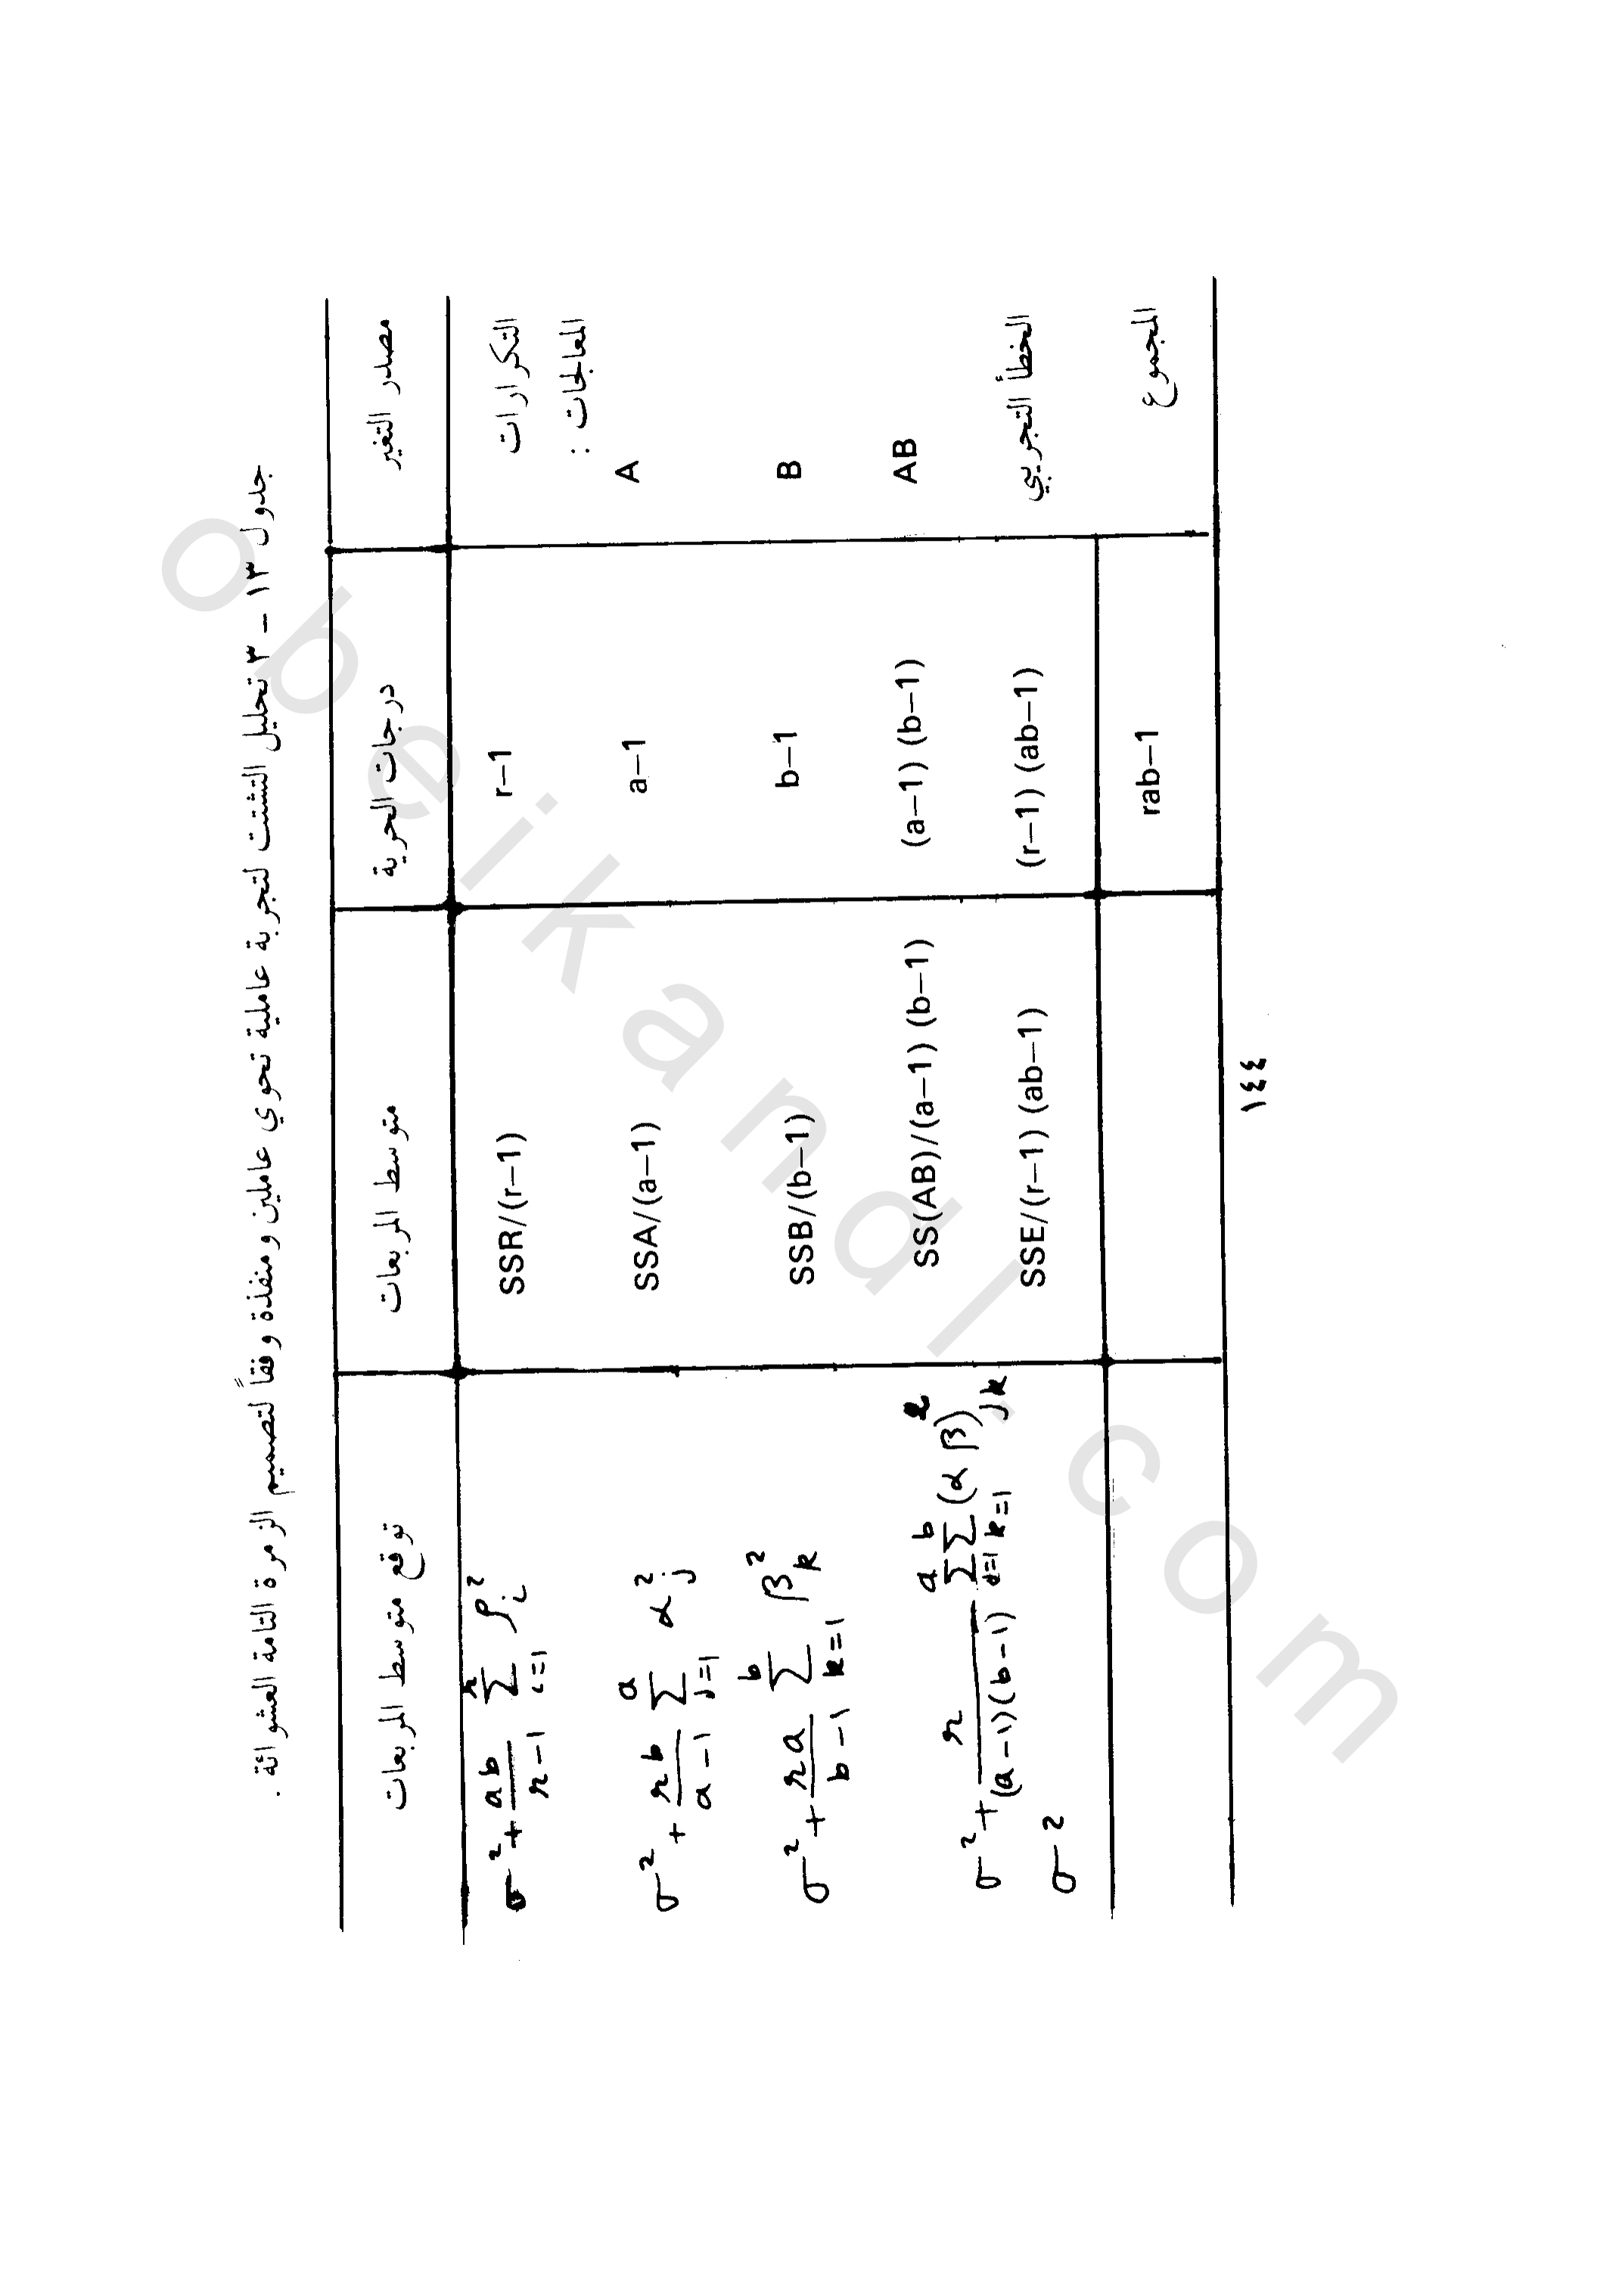 جدول ١٣ – ٣ تحليل التشتت لتجربة عاملية تحوي عاملين ومنفذة وفقاً لتصميم الزمرة التامة العشوائة .
مصدر التغير درجات الحرية متوسط المربعات توقع متوسط المربعات
التكرارات r−1 SSR/(r−1) σ² + ab/(r−1) Σ_{i=1}^{r} ρ_i²
المعالجات :
A a−1 SSA/(a−1) σ² + rb/(a−1) Σ_{j=1}^{a} α_j²
B b−1 SSB/(b−1) σ² + ra/(b−1) Σ_{k=1}^{b} β_k²
AB (a−1) (b−1) SS(AB)/(a−1) (b−1) σ² + r/((a−1)(b−1)) Σ_{j=1}^{a} Σ_{k=1}^{b} (αβ)²_{jk}
الخطأ التجريبي (r−1) (ab−1) SSE/(r−1) (ab−1) σ²
المجموع rab−1
١٤٤
obeikandl.com